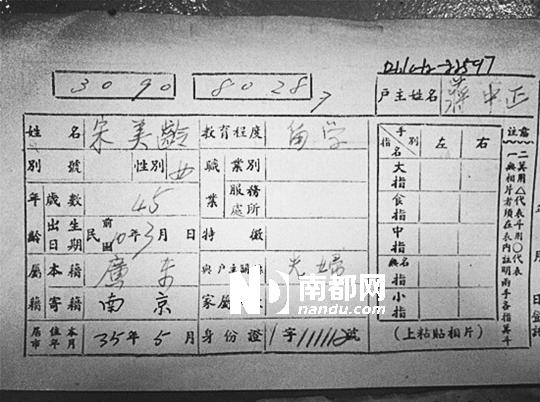 3090 80287
户主姓名 蔣中正
姓名 宋美齡 教育程度 留学
別號 性別 女 職業 業別
年齡 歲數 45 服務處所
出生日期 民國前10年3月 日 特徵
屬籍 本籍 廣東 與户主關係 夫婦
寄籍 南京 家屬
居住本市年月 35年5月 身份證 字11111號
手別 指名 左 右
大指
食指
中指
無名指
小指
(上粘貼相片)
二箕用△代表斗用〇代表
一無相片者須在表内註明兩手各指箕斗
南都网
nandu.com